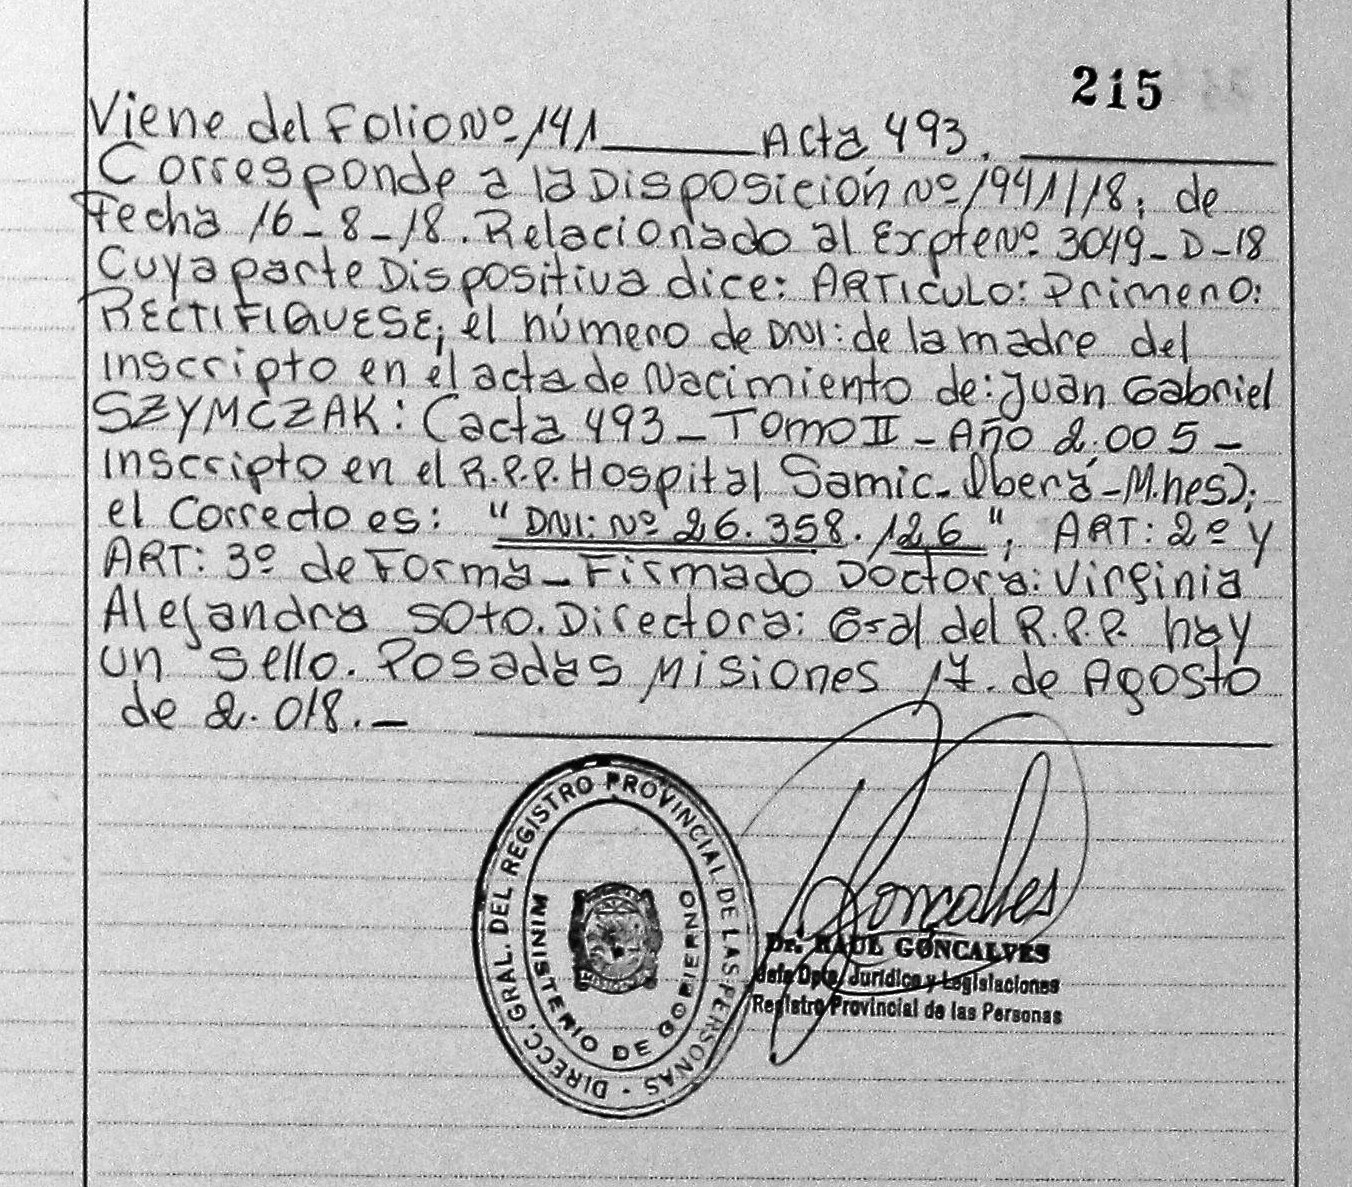 215
Viene del Folio Nº 141 ______ Acta 493. ______
Corresponde a la Disposición Nº 1941/18; de
Fecha 16-8-18. Relacionado al Expte Nº 3049-D-18
Cuya parte Dispositiva dice: ARTICULO: Primero:
RECTIFIQUESE; el número de DNI: de la madre del
inscripto en el acta de Nacimiento de: Juan Gabriel
SZYMCZAK: (acta 493 - Tomo II - Año 2.005 -
inscripto en el R.P.P. Hospital Samic. Oberá - M.nes);
el Correcto es: "DNI: Nº 26.358.126"; ART: 2º y
ART: 3º de Forma - Firmado Doctora: Virginia
Alejandra Soto. Directora: Gral del R.P.P. hay
un sello. Posadas Misiones 17. de Agosto
de 2.018.-
DIRECC. GRAL. DEL REGISTRO PROVINCIAL DE LAS PERSONAS -
MINISTERIO DE GOBIERNO
Goncalves
Dr. RAUL GONCALVES
Jefe Dpto. Jurídico y Legislaciones
Registro Provincial de las Personas